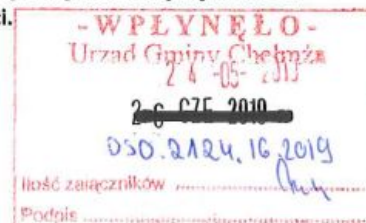 ci.
- WPŁYNĘŁO -
Urząd Gminy Chełmża
2 4 -05- 2019
2 6 CZE 2019
OSO.2124.16.2019
Ilość załączników ..........
Podpis ..........